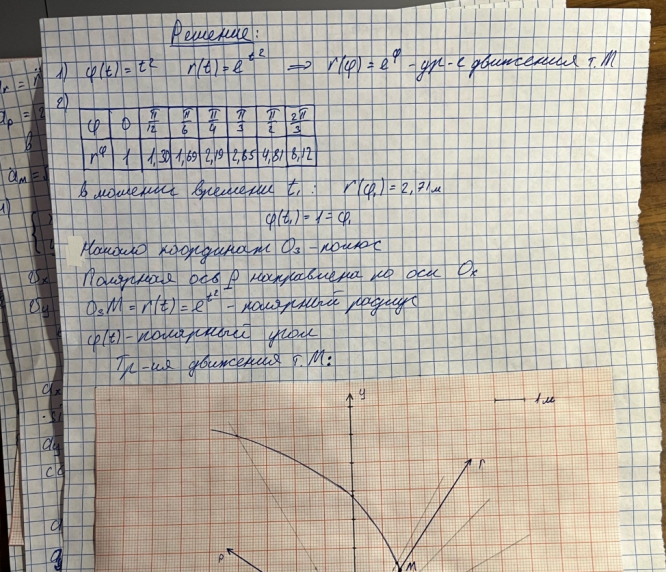 Решение:
1) φ(t) = t² r(t) = e^t² ⇒ r(φ) = e^φ - ур-е движения т. М
2)
φ 0 π/12 π/6 π/4 π/3 π/2 2π/3
r^φ 1 1,30 1,69 2,19 2,85 4,81 8,12
В момент времени t₁: r(φ₁) = 2,71 м
φ(t₁) = 1 = φ₁
Начало координат O₃ - полюс
Полярная ось ρ направлена по оси Ox
O₃M = r(t) = e^t² - полярный радиус
φ(t) - полярный угол
Тр-ия движения т. М:
y
1 м
r
P
M